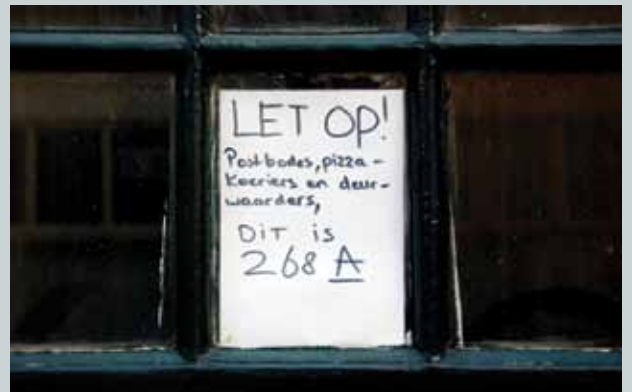 LET OP!
Postbodes, pizza-
koeriers en deur-
waarders,
DiT is
268 A